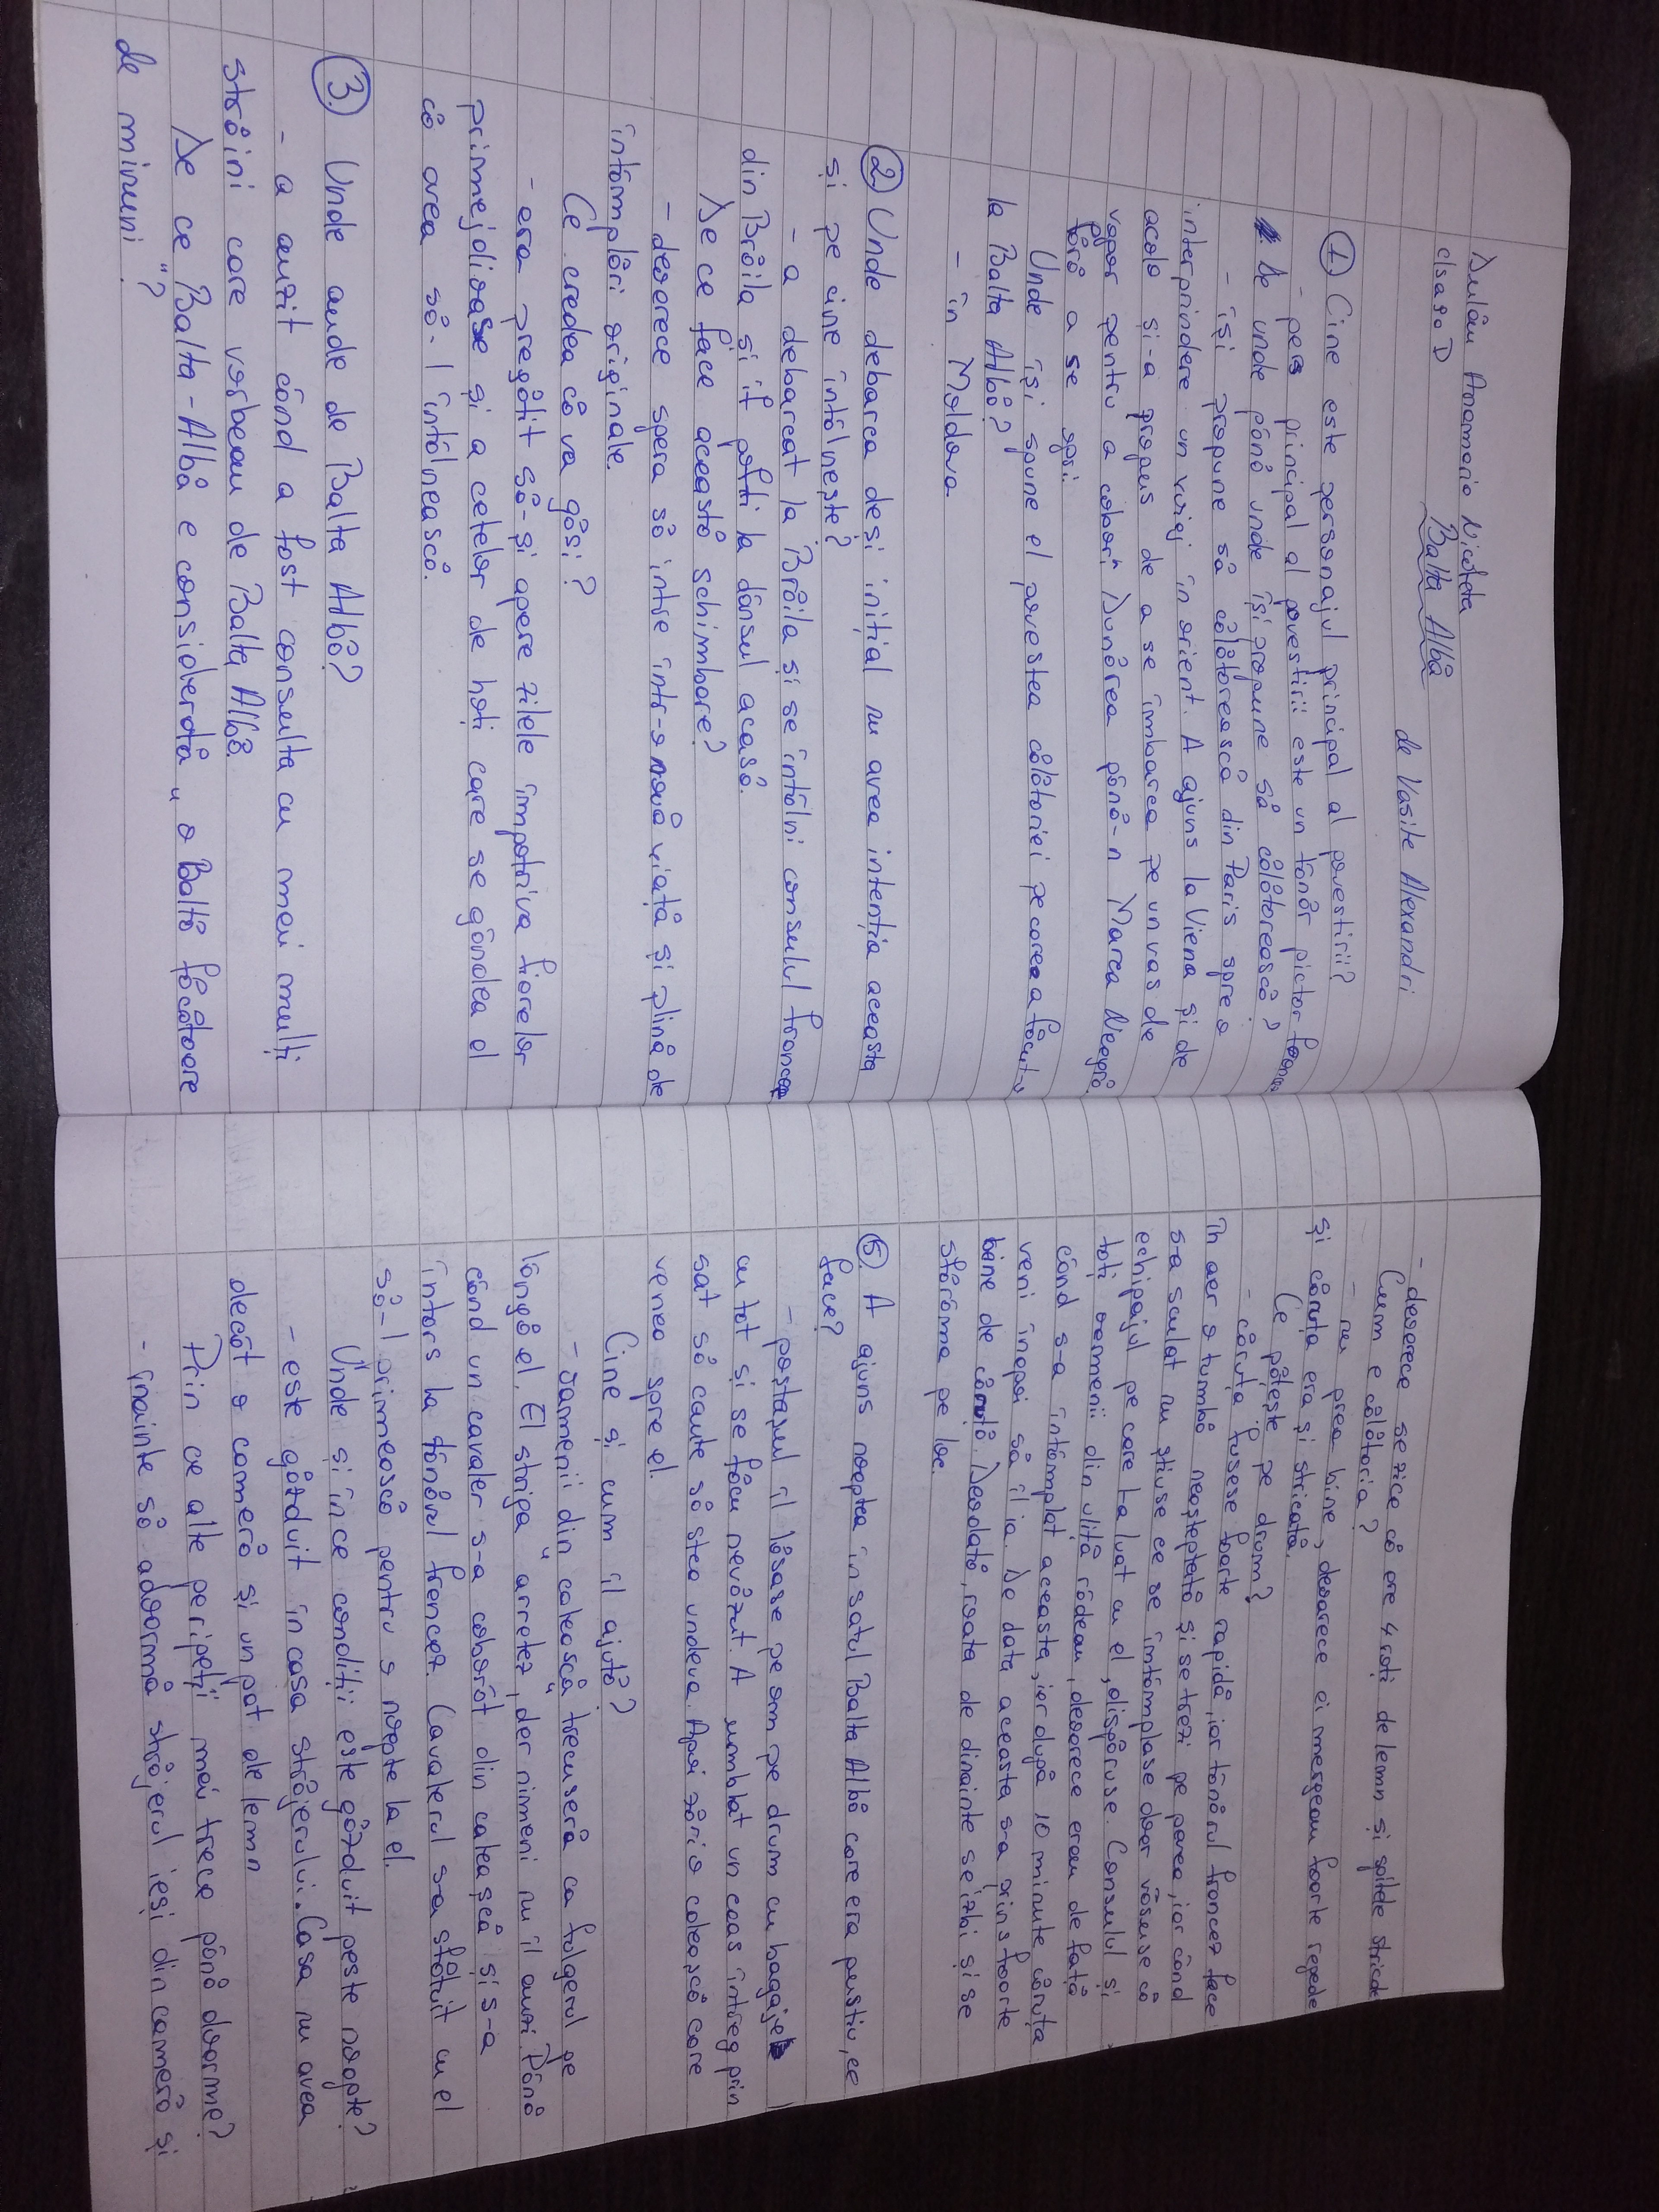 Duilău Anamaria Nicoleta
clsa a 9a D
Balta Albă
de Vasile Alexandri
① Cine este personajul principal al povestirii?
- pers principal al povestirii este un tânăr pictor
De unde până unde își propune să călătorească?
- își propune să călătorească din Paris spre a
interprindere un voiaj în orient. A ajuns la Viena și de
acolo și-a propus de a se îmbarca pe un vas de
vapor pentru a coborî Dunărea până-n Marea Neagră
fără a se opri.
Unde își spune el povestea călătoriei pe care a făcut-o
la Balta Albă?
- în Moldova
② Unde debarca deși inițial nu avea intenția aceasta
și pe cine întâlnește?
- a debarcat la Brăila și se întâlni consulul francez
din Brăila și îl pofti la dânsul acasă.
De ce face această schimbare?
- deoerece spera să intre într-o nouă viață și plină de
întâmplări originale.
Ce credea că va găsi?
- era pregătit să-și apere zilele împotriva fiarelor
primejdioase și a cetelor de hoți care se gândea el
că avea să-l întâlnească.
③. Unde aude de Balta Albă?
- a auzit când a fost consulta cu mai mulți
străini care vorbeau de Balta Albă.
De ce Balta-Albă e considerată „o Baltă făcătoare
de minuni"?
- deoerece se zice că are 4 roți de lemn și spițele stricate
Cum e călătoria?
- nu prea bine, deoarece ei mergeau foarte repede
și căruța era și stricată.
Ce pățește pe drum?
- căruța fusese foarte rapidă, iar tânărul francez face
în aer o tumbă neașteptată și se trezi pe parea, iar când
s-a sculat nu știuse ce se întâmplase doar văsuse că
echipajul pe care l-a luat cu el, dispăruse. Consulul și
toți oamenii din uliță râdeau, deoarece erau de față
când s-a întâmplat aceasta, iar după 10 minute căruța
veni înapoi să îl ia. De data aceasta s-a prins foarte
bine de căruță. Deodată, roata de dinainte se izbi și se
sfărâma pe loc.
⑤. A ajuns noaptea în satul Balta Albă care era pustiu, ce
face?
- poștașul îl lăsase pe om pe drum cu bagaje
cu tot și se făcu nevăzut. A umblat un ceas întreg prin
sat să caute să stea undeva. Apoi zări o caleașcă care
venea spre el.
Cine și cum îl ajută?
- oamenii din caleașcă trecuseră ca fulgerul pe
lângă el. El striga „arretez", der nimeni nu îl auzi. Până
când un cavaler s-a coborât din caleașcă și s-a
întors la tânărul francez. Cavalerul s-a sfătuit cu el
să-l primească pentru o noapte la el.
Unde și în ce condiții este găzduit peste noapte?
- este găzduit în casa străjerului. Casa nu avea
decât o cameră și un pat de lemn
Prin ce alte peripeții mai trece până doarme?
- înainte să adoarmă străjerul ieși din cameră și